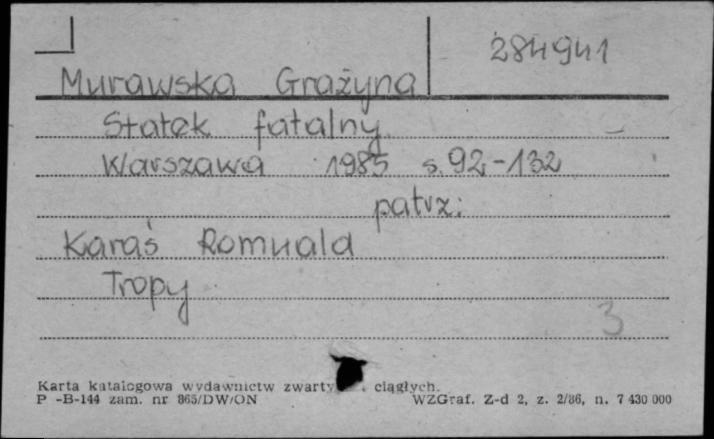 284941
Murawska Grażyna
Statek fatalny
Warszawa 1985 s. 92-132
patrz:
Karaś Romuald
Tropy
3
Karta katalogowa wydawnictw zwarty ciągłych.
P -B-144 zam. nr 865/DW/ON WZGraf. Z-d 2, z. 2/86, n. 7 430 000